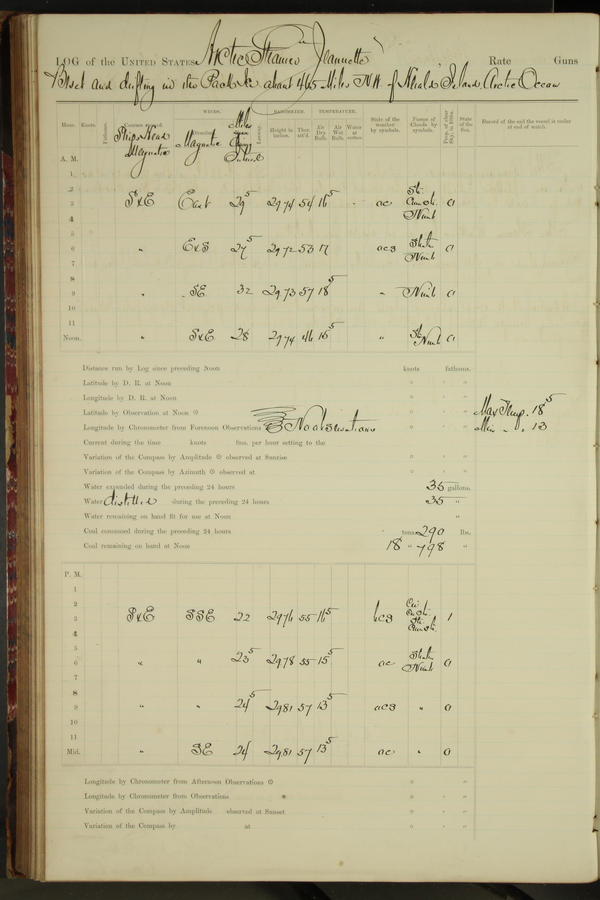 LOG of the UNITED STATES Arctic Steamer Jeannette Rate Guns
Beset and drifting in the Pack Ice about 465 Miles N.W. of Herald Island, Arctic Ocean
WINDS. BAROMETER. TEMPERATURE.
Hour. Knots. Fathoms. Courses steered. Direction. Leeway. Height in inches. Ther. att'd. Air Dry Bulb. Air Wet Bulb. Water at surface. State of the weather by symbols. Forms of Clouds by symbols. State of the Sea. Record of the sail the vessel is under at end of watch.
Ship's Head Magnetic Magnetic
A. M.
1
2
3 SxE East 29⁵ 29 74 54 16⁵ oc Cum St. Nimb 0
4
5
6 " ExS 27⁵ 29 72 53 17 ocs Strat. Nimb 0
7
8
9 " SE 32 29 73 57 18⁵ " Nimb 0
10
11
Noon. " SxE 28 29 74 46 16⁵ " St. Nimb 0
Distance run by Log since preceding Noon knots fathoms.
Latitude by D. R. at Noon ° ' "
Longitude by D. R. at Noon ° ' "
Latitude by Observation at Noon ☉ ° ' " Max Temp. 18⁵
Longitude by Chronometer from Forenoon Observations No observations ° ' " Min " . 13
Current during the time knots fms. per hour setting to the
Variation of the Compass by Amplitude ☉ observed at Sunrise ° ' "
Variation of the Compass by Azimuth ☉ observed at ° ' "
Water expended during the preceding 24 hours 35 gallons.
Water distilled during the preceding 24 hours 35 "
Water remaining on hand fit for use at Noon "
Coal consumed during the preceding 24 hours tons 290 lbs.
Coal remaining on hand at Noon 18 " 798 "
P. M.
1
2
3 SxE SSE 22 29 76 55 16⁵ bcs 1
4
5
6 " " 23⁵ 29 78 55 15⁵ oc Strat. Nimb 0
7
8
9 " " 24⁵ 29 81 57 13⁵ ocs " 0
10
11
Mid. " SE 24 29 81 57 13⁵ oc " 0
Longitude by Chronometer from Afternoon Observations ☉ ° ' "
Longitude by Chronometer from Observations * ° ' "
Variation of the Compass by Amplitude observed at Sunset ° ' "
Variation of the Compass by at ° ' "